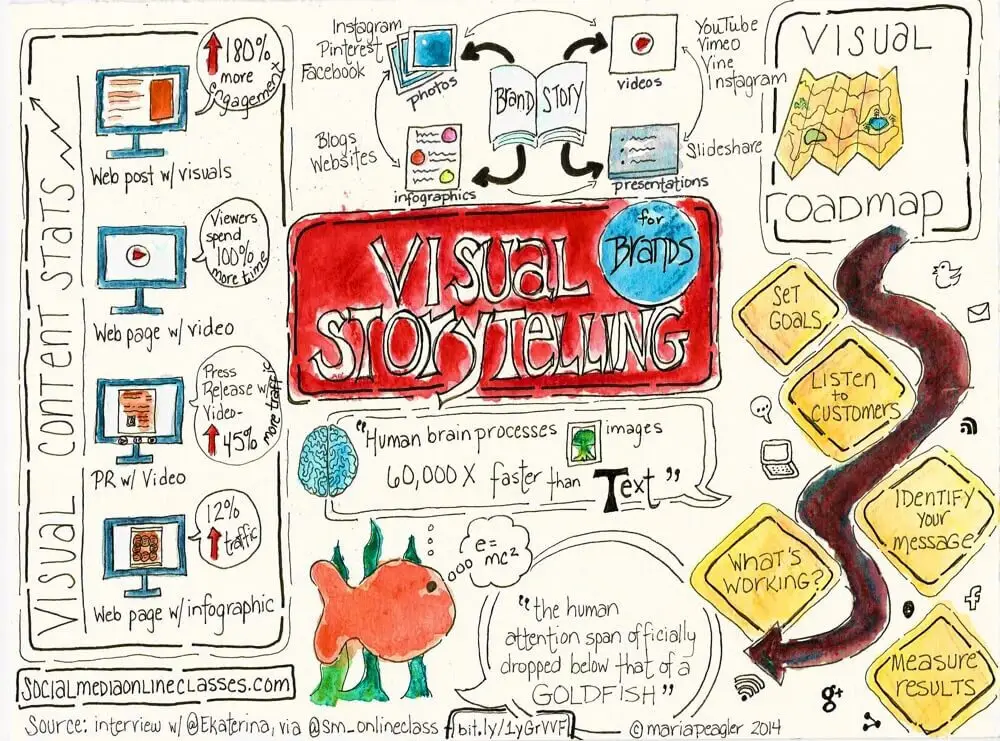 VISUAL CONTENT STATS
180%
more
engagement
Web post w/ visuals
Viewers
spend
100%
more time
Web page w/ video
Press
Release w/
Video-
45%
more traffic
PR w/ Video
12%
traffic
Web page w/ infographic
Socialmediaonlineclasses.com
Instagram
Pinterest
Facebook
photos
Blogs
Websites
infographics
Brand Story
videos
YouTube
Vimeo
Vine
Instagram
Slideshare
presentations
VISUAL
STORYTELLING
for
Brands
"Human brain processes images
60,000 X faster than Text"
e=
mc²
"the human
attention span officially
dropped below that of a
GOLDFISH"
VISUAL
roadmap
SET
GOALS
LISTEN
to
CUSTOMERS
IDENTIFY
YOUR
message
WHAT'S
WORKING?
Measure
RESULTS
f
g+
Source: interview w/ @Ekaterina, via @sm_onlineclass bit.ly/1yGrVVF © mariapeagler 2014